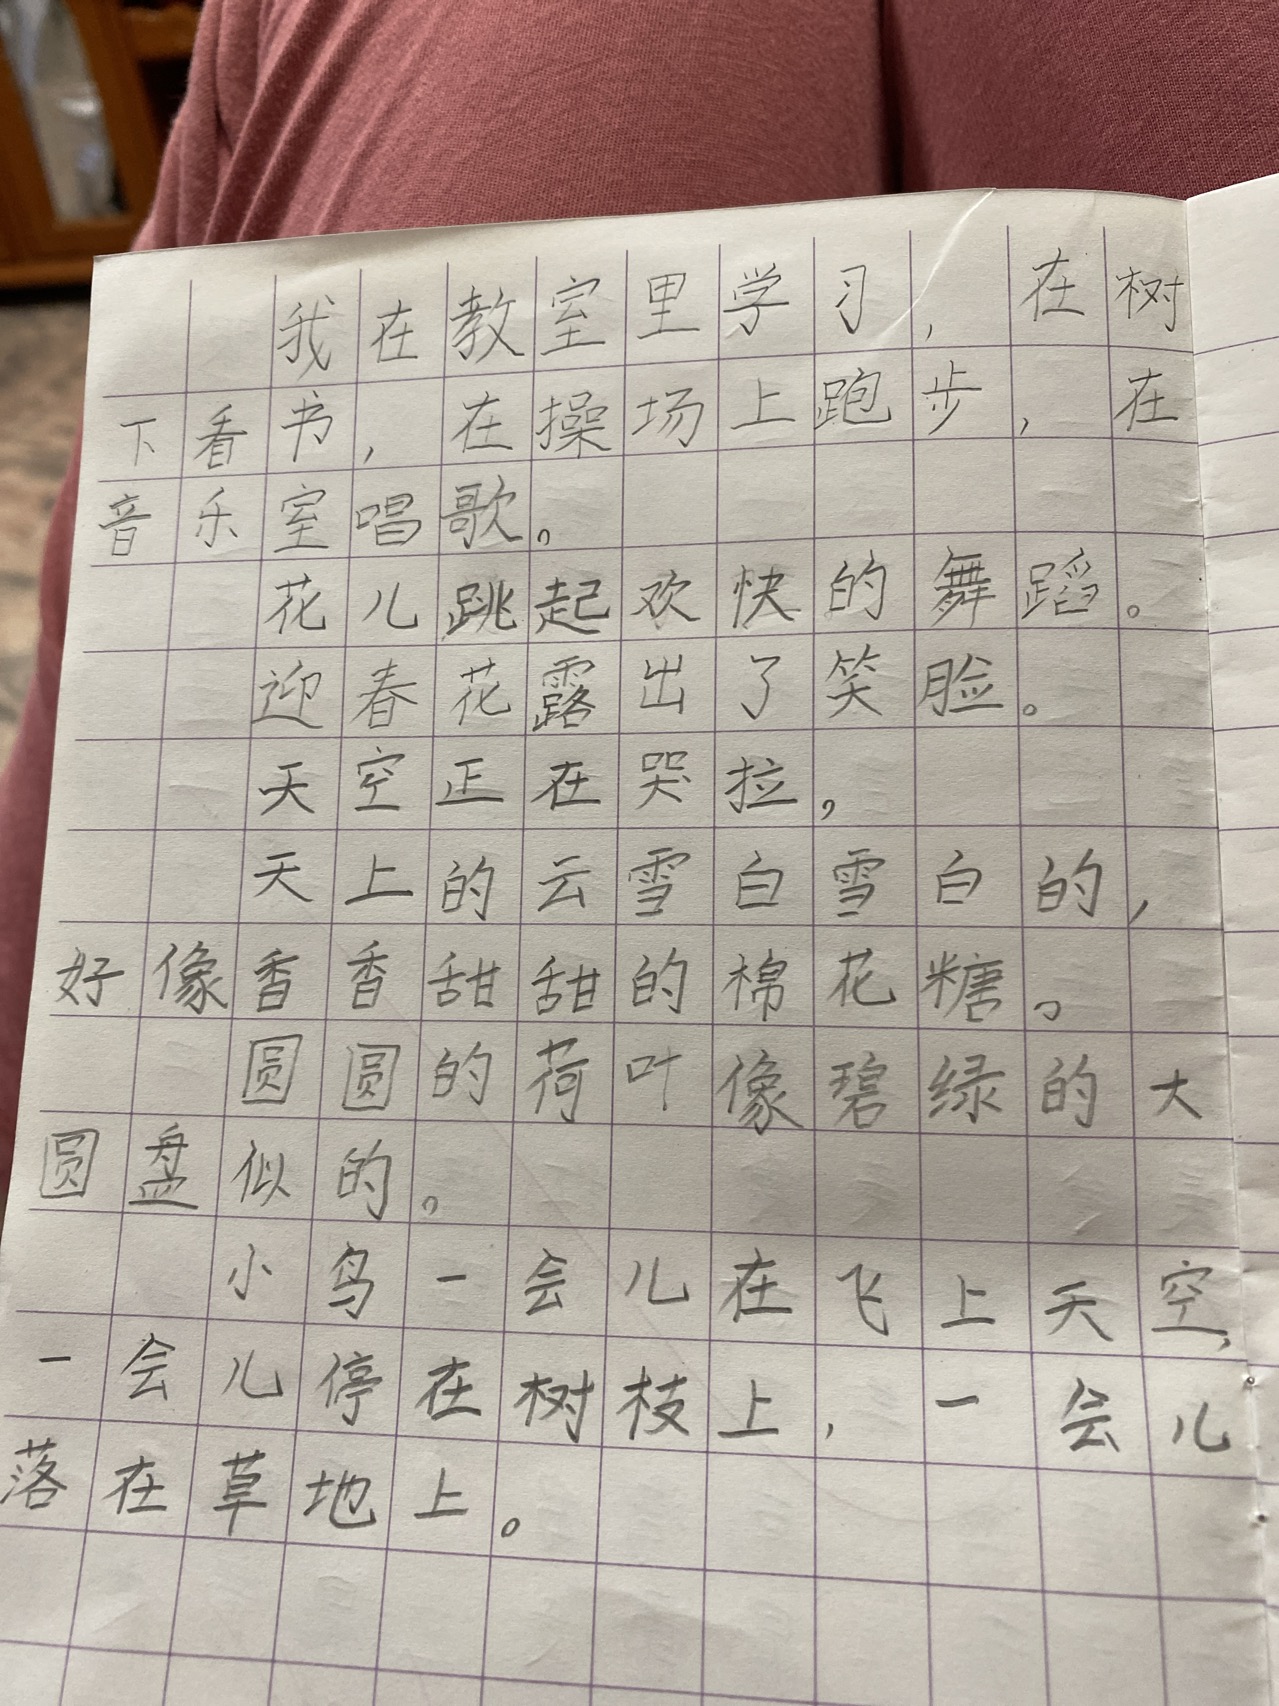 我在教室里学习,在树
下看书,在操场上跑步,在
音乐室唱歌。
花儿跳起欢快的舞蹈。
迎春花露出了笑脸。
天空正在哭拉。
天上的云雪白雪白的,
好像香香甜甜的棉花糖。
圆圆的荷叶像碧绿的大
圆盘似的。
小鸟一会儿在飞上天空,
一会儿停在树枝上,一会儿
落在草地上。